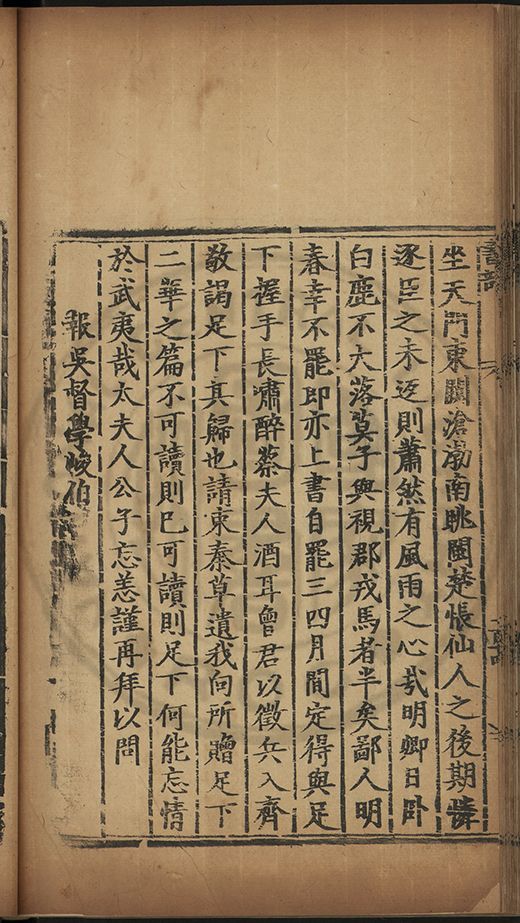 坐天門東闚滄渤南眺閩楚悵仙人之後期憐
逐臣之未返則蕭然有風雨之心哉明卿日卧
白鹿不大落莫子與視郡戎馬者半矣鄙人明
春幸不罷即亦上書自罷三四月間定得與足
下握手長嘯醉蔡夫人酒耳曾君以徵兵入齊
敬謁足下其歸也請東秦草遺我向所贈足下
二華之篇不可讀則已可讀則足下何能忘情
於武夷哉太夫人公子忘恙謹再拜以問
報吳督學峻伯